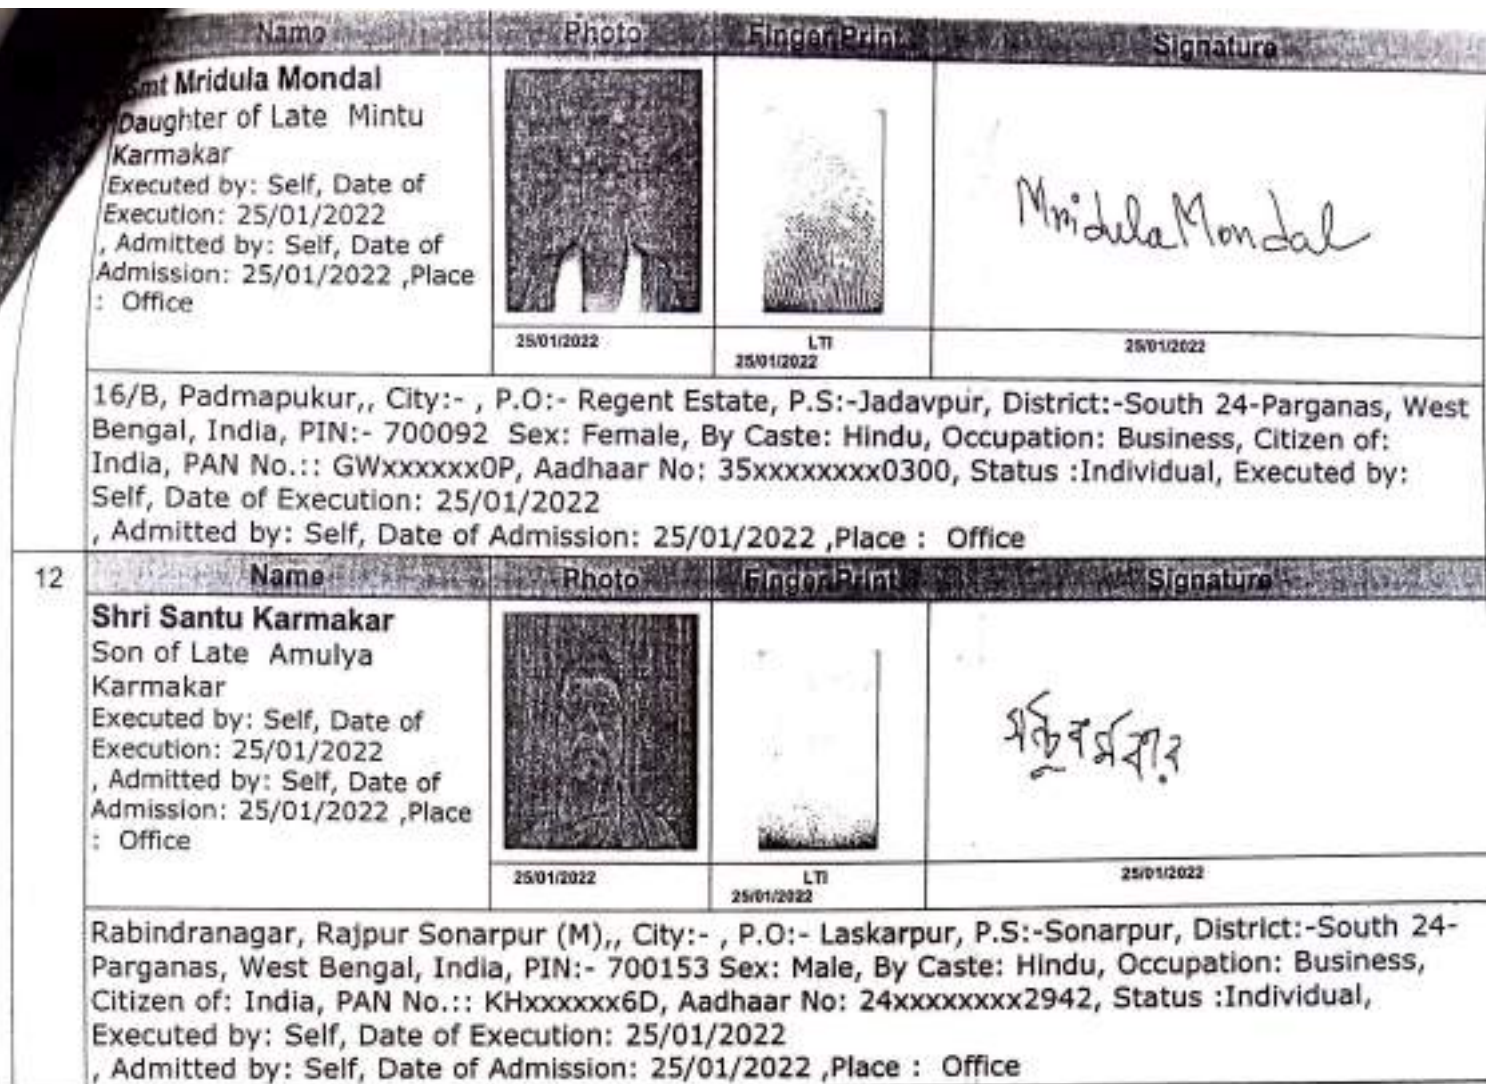 Name Photo Finger Print Signature
Smt Mridula Mondal
Daughter of Late Mintu
Karmakar
Executed by: Self, Date of
Execution: 25/01/2022
, Admitted by: Self, Date of
Admission: 25/01/2022 ,Place
: Office
Mridula Mondal
25/01/2022 LTI 25/01/2022
25/01/2022
16/B, Padmapukur,, City:- , P.O:- Regent Estate, P.S:-Jadavpur, District:-South 24-Parganas, West
Bengal, India, PIN:- 700092 Sex: Female, By Caste: Hindu, Occupation: Business, Citizen of:
India, PAN No.:: GWxxxxxx0P, Aadhaar No: 35xxxxxxxx0300, Status :Individual, Executed by:
Self, Date of Execution: 25/01/2022
, Admitted by: Self, Date of Admission: 25/01/2022 ,Place : Office
12 Name Photo Finger Print Signature
Shri Santu Karmakar
Son of Late Amulya
Karmakar
Executed by: Self, Date of
Execution: 25/01/2022
, Admitted by: Self, Date of
Admission: 25/01/2022 ,Place
: Office
সন্তু কর্মকার
25/01/2022 LTI 25/01/2022
25/01/2022
Rabindranagar, Rajpur Sonarpur (M),, City:- , P.O:- Laskarpur, P.S:-Sonarpur, District:-South 24-
Parganas, West Bengal, India, PIN:- 700153 Sex: Male, By Caste: Hindu, Occupation: Business,
Citizen of: India, PAN No.:: KHxxxxxx6D, Aadhaar No: 24xxxxxxxx2942, Status :Individual,
Executed by: Self, Date of Execution: 25/01/2022
, Admitted by: Self, Date of Admission: 25/01/2022 ,Place : Office